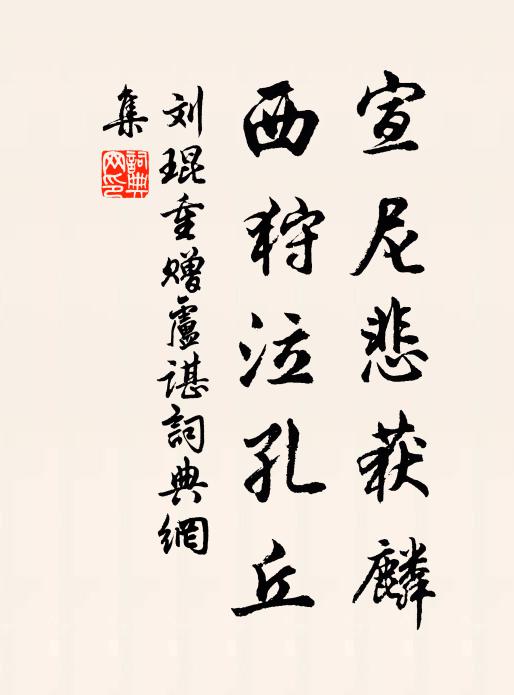 宣尼悲获麟
西狩泣孔丘
刘琨重赠盧谌詞典網
集
詞典
网印